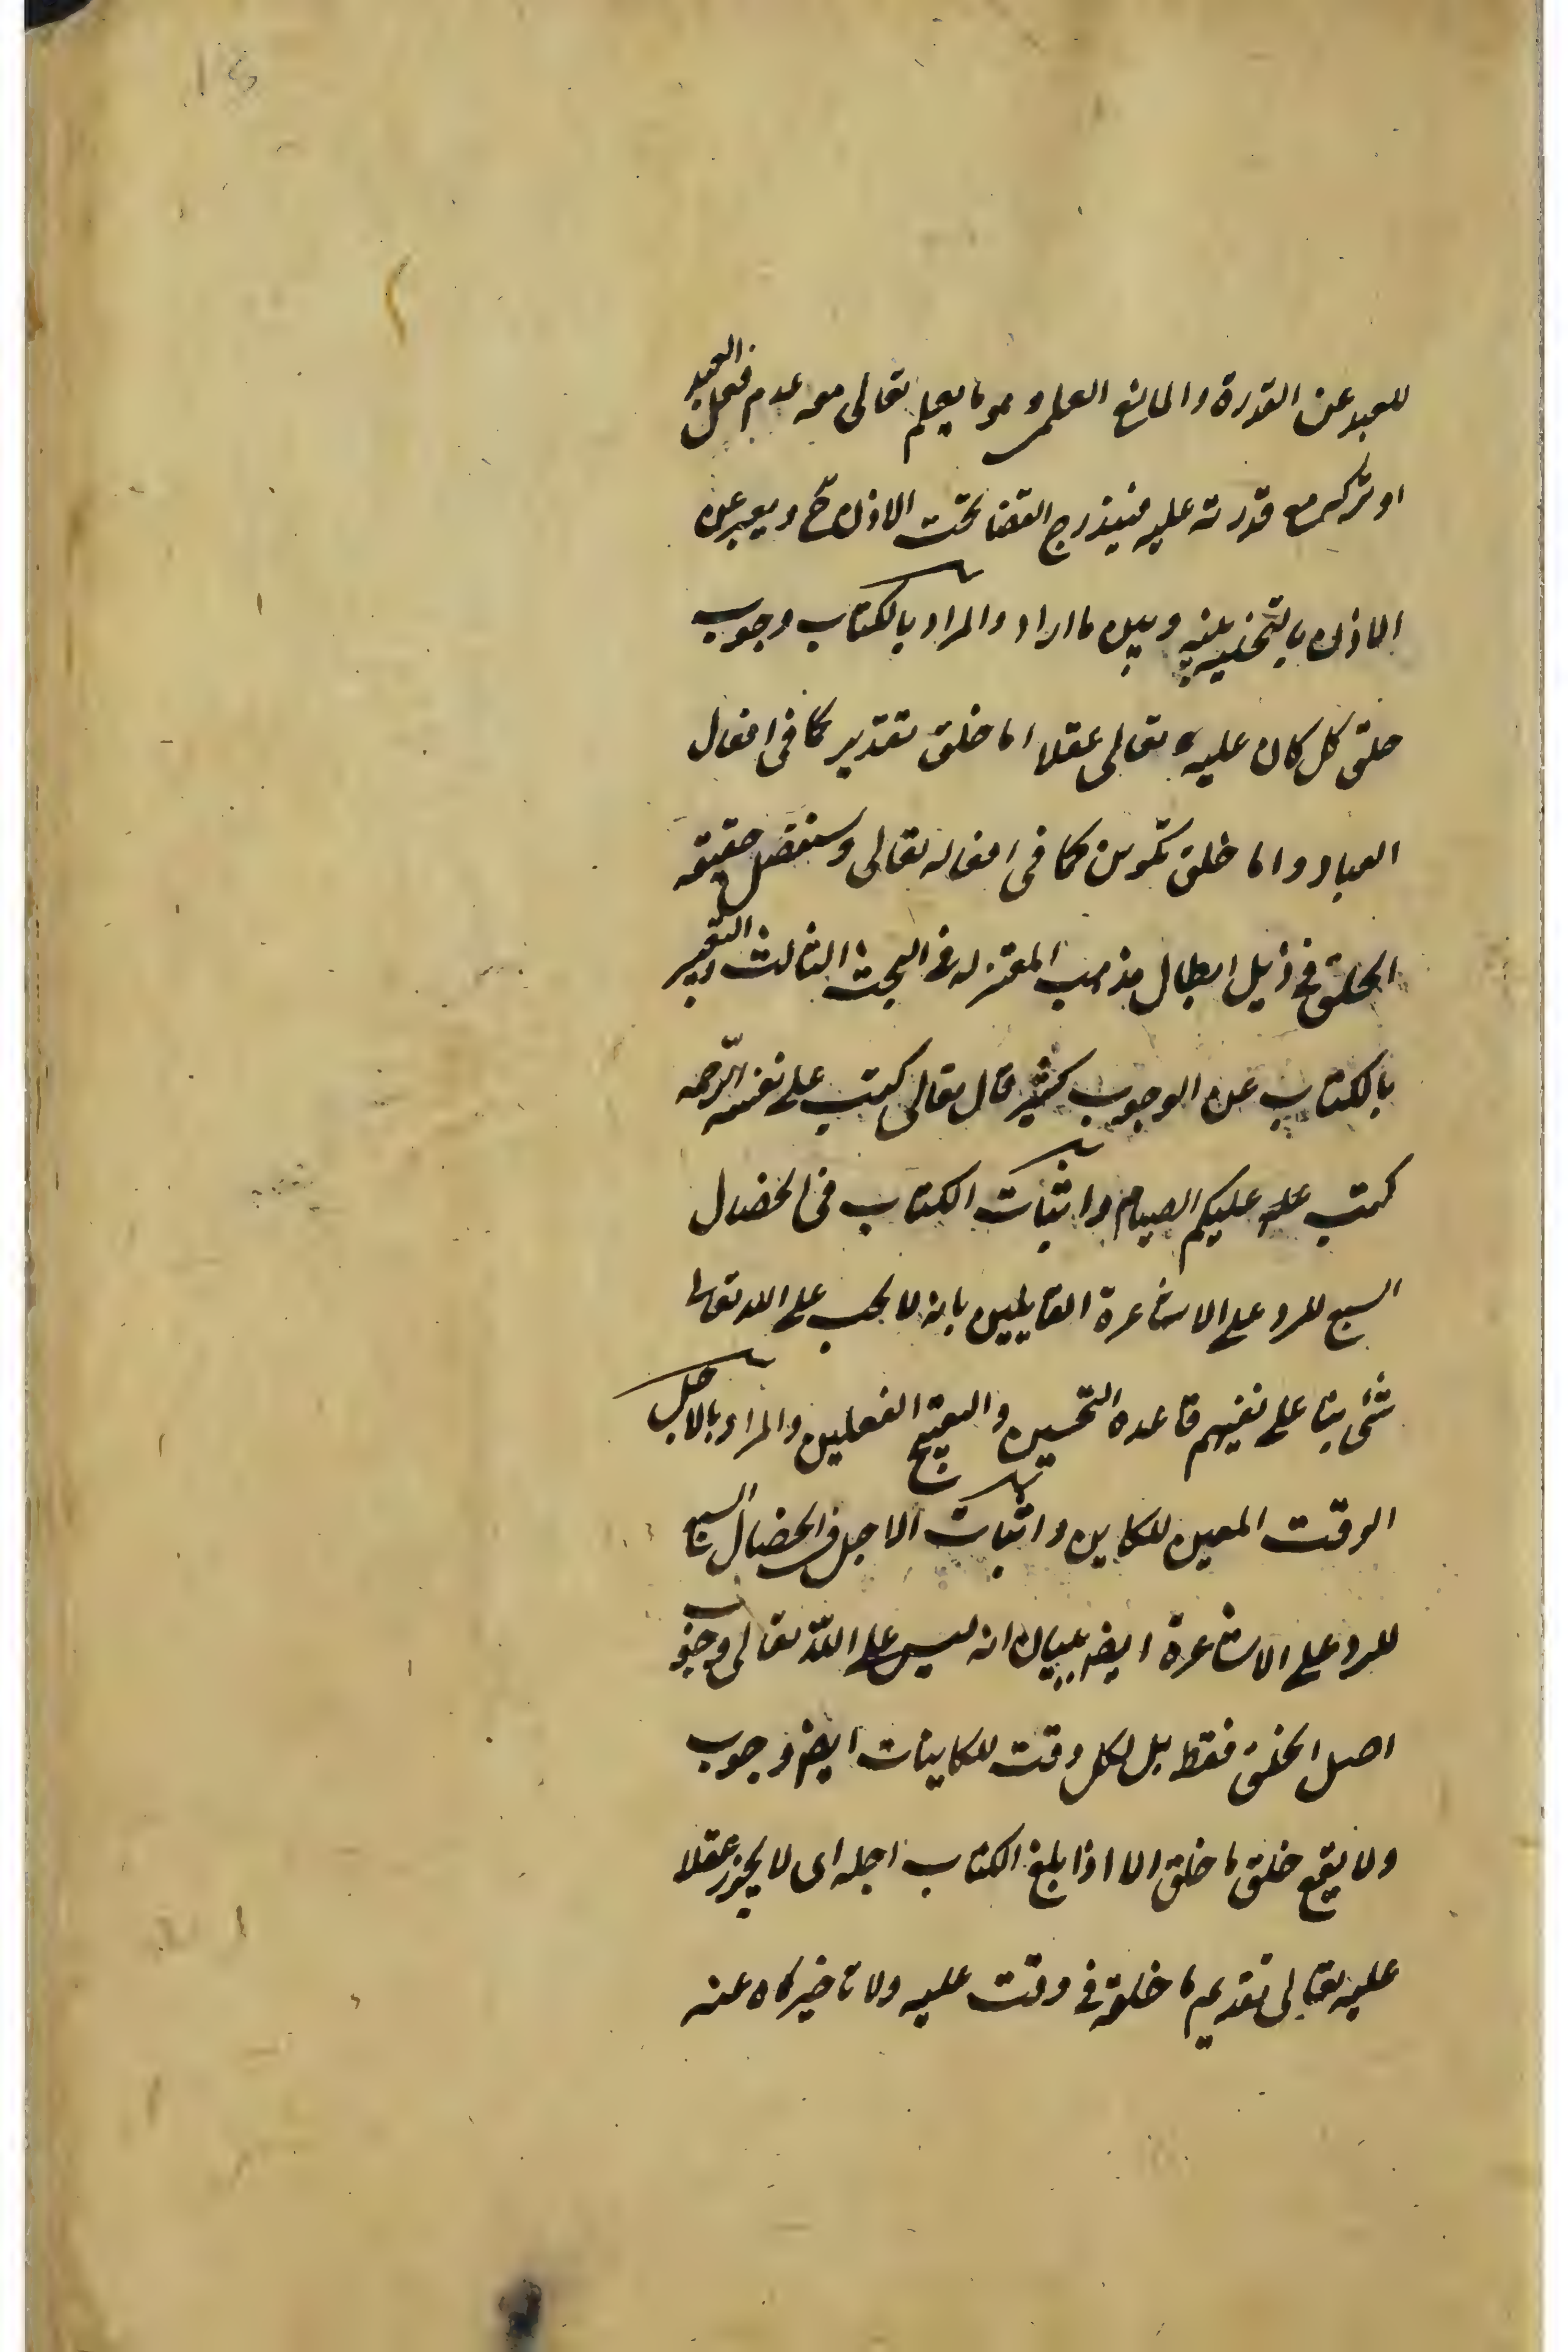 للعبد عن القدرة والمانع العلمى وهو ما يعلم تعالى معه عدم فعل العبد
او تركه مع قدرته عليه فيندرج القضا تحت الاذن ح ويعبر عن
الاذن بالتخلية بينه وبين ما اراد والمراد بالكتاب وجوب
خلق كل كان عليه تعالى عقلا اما خلق تقدير كما فى افعال
العباد واما خلق تكوين كما فى افعاله تعالى وسنفصل حقيقه
الخلق فى ذيل ابطال مذهب المعتزله فى البحث الثالث والتعبير
بالكتاب عن الوجوب كثير قال تعالى كتب على نفسه الرّحمه
كتب عليكم الصيام واثبات الكتاب فى الخصال
السبع للرد على الاشاعرة القايلين بانه لا يجب على الله تعالى
شئ بنا على نفيهم قاعده التحسين والتقبيح العقليين والمراد بالاجل
الوقت المعين للكاين واثبات الاجل فى الخصال السبع
للرد على الاشاعرة ايضا ببيان انه ليس على اللّه تعالى وجوب
اصل الخلق فقط بل لكل وقت للكاينات ايضا وجوب
ولا يقع خلق ما خلق الا اذا بلغ الكتاب اجله اى لا يجوز عقلا
عليه تعالى تقديم ما خلقه فى وقت عليه ولا تاخيره عنه